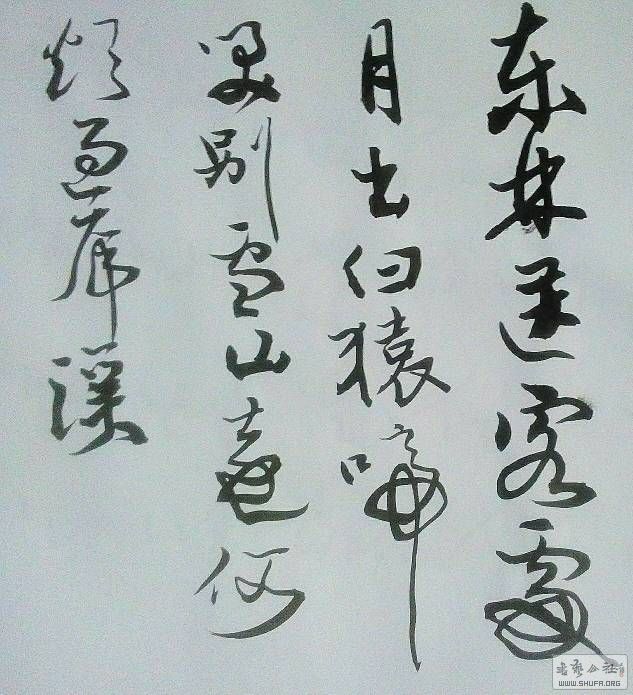 东林送客處
月出白猿啼
笑别廬山遠何
烦過虎溪
書藝公社
WWW.SHUFA.ORG